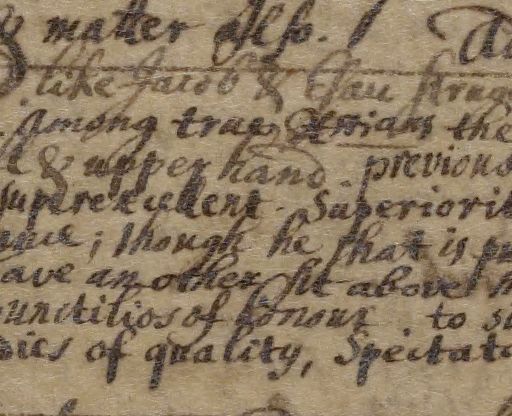 & matter also. /
like Jacob & Esau strug
Among tragedians the
& upper hand. previous
superexcellent. Superiorit
; though he that is pr
ave another sit above
punctilios of honour to
dies of quality, Spectato